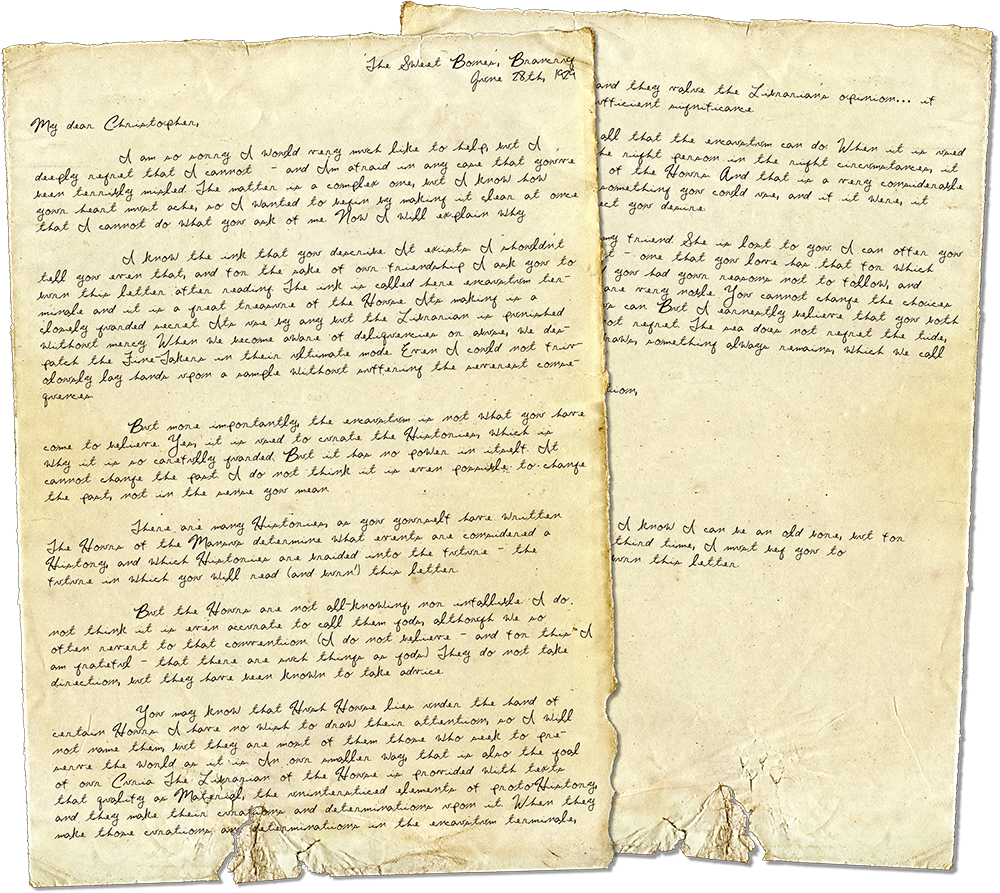 'The Sweet Bones', Brancrug
June 28th, 1929
My dear Christopher,
I am so sorry. I would very much like to help, but I
deeply regret that I cannot - and I'm afraid in any case that you've
been terribly misled. The matter is a complex one, but I know how
your heart must ache, so I wanted to begin by making it clear at once
that I cannot do what you ask of me. Now I will explain why.
I know the ink that you describe. It exists. I shouldn't
tell you even that, and for the sake of our friendship I ask you to
burn this letter after reading. The ink is called here encaustum ter-
minale and it is a great treasure of the House. Its making is a
closely guarded secret. Its use by any but the Librarian is punished
without mercy. When we become aware of delinquencies or abuse, we des-
patch the Fine-Takers in their ultimate mode. Even I could not friv-
olously lay hands upon a sample without suffering the severest conse-
quences.
But more importantly, the encaustum is not what you have
come to believe. Yes, it is used to curate the Histories, which is
why it is so carefully guarded. But it has no power in itself. It
cannot change the past. I do not think it is even possible to change
the past, not in the sense you mean.
There are many Histories, as you yourself have written.
The Hours of the Mansus determine what events are considered a
History, and which Histories are braided into the future - the
future in which you will read (and burn!) this letter.
But the Hours are not all-knowing, nor infallible. I do
not think it is even accurate to call them gods, although we so
often revert to that convention. (I do not believe - and for this I
am grateful - that there are such things as gods.) They do not take
direction, but they have been known to take advice.
You may know that Hush House lies under the hand of
certain Hours. I have no wish to draw their attention, so I will
not name them, but they are most of them those who seek to pre-
serve the world as it is. In our smaller way, that is also the goal
of our Curia. The Librarian of the House is provided with texts
that qualify as Material, the uninsticed elements of proto-History,
and they make their curations and determinations upon it. When they
make those curations and determinations in the encaustum terminale,
and they value the Librarian's opinion... if
sufficient significance.
all that the encaustum can do. When it is used
the right person in the right circumstances, it
of the Hours. And that is a very considerable
something you could use, and if it were, it
ect you desire.
my friend. She is lost to you. I can offer you
- one that you love has that for which
you had your reasons not to follow, and
are very noble. You cannot change the choices
can. But I earnestly believe that you both
not regret. The sea does not regret the tide,
something always remains, which we call
I know I can be an old bore, but for
third time, I must beg you to
burn this letter.